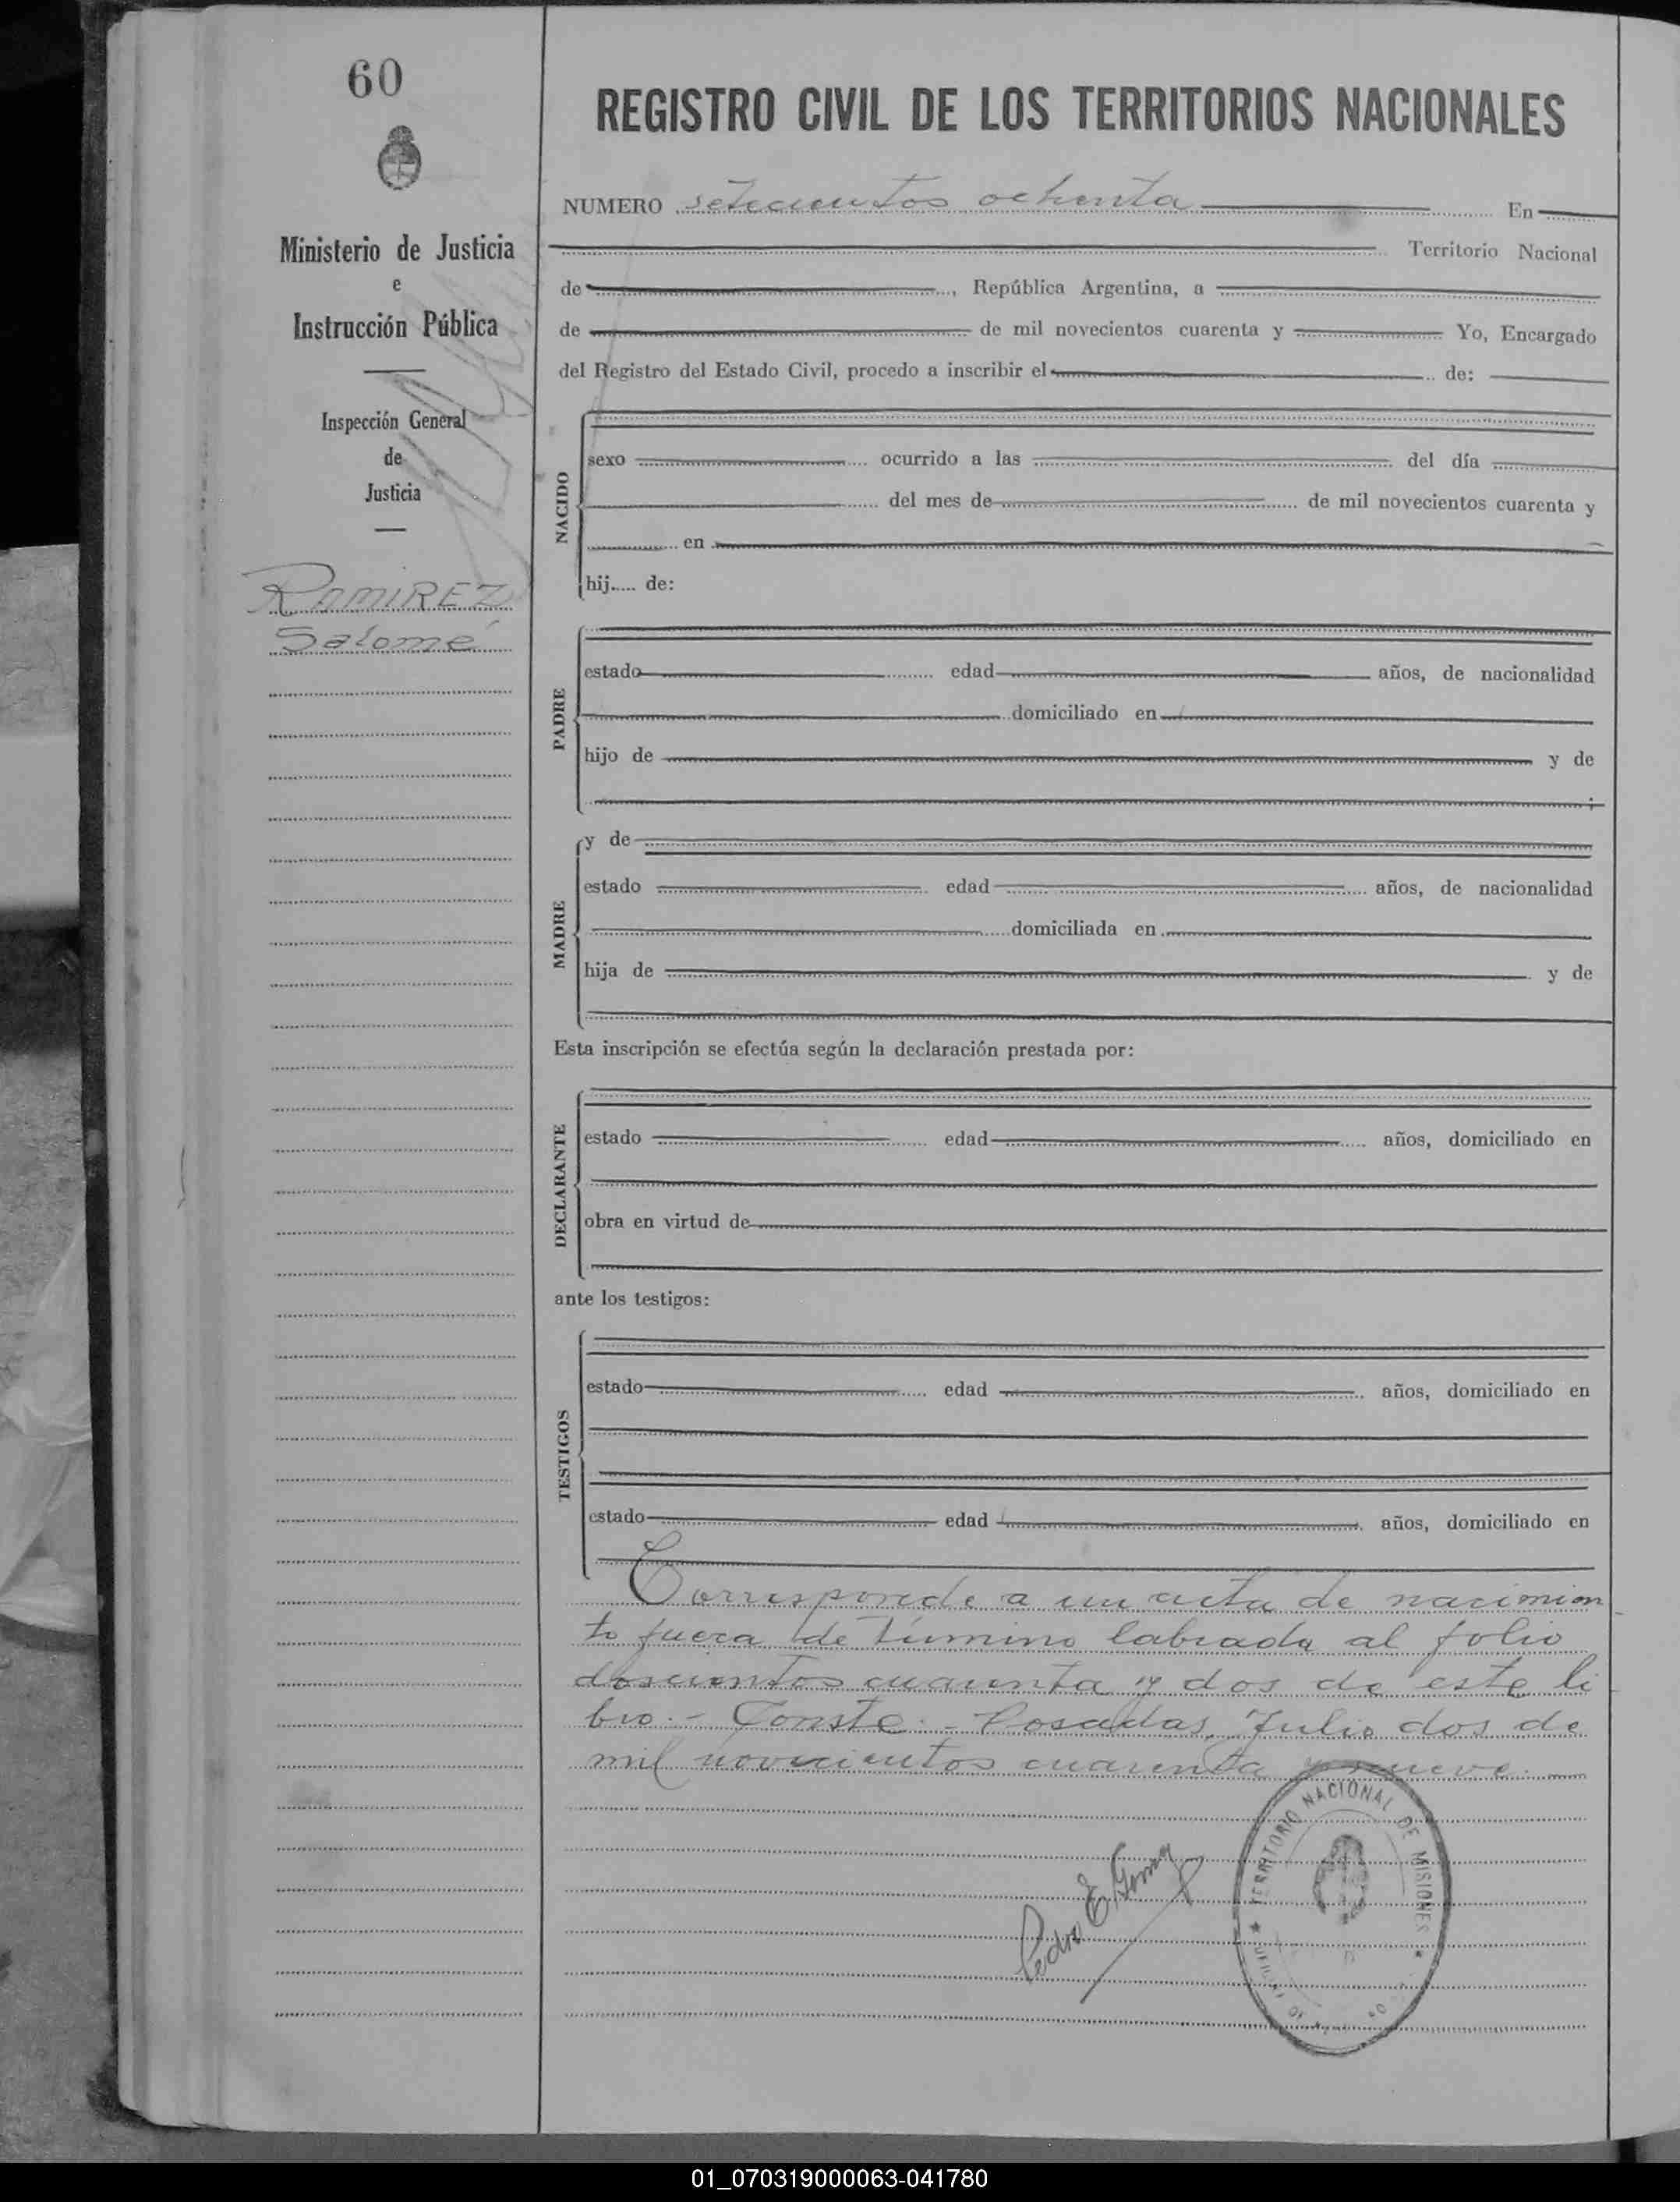 60
REGISTRO CIVIL DE LOS TERRITORIOS NACIONALES
NUMERO setecientos ochenta En
Ministerio de Justicia
e
Instrucción Pública
Inspección General
de
Justicia
RAMIREZ
Salomé
Territorio Nacional
de , República Argentina, a
de de mil novecientos cuarenta y Yo, Encargado
del Registro del Estado Civil, procedo a inscribir el de:
NACIDO
sexo ocurrido a las del día
del mes de de mil novecientos cuarenta y
en
hij..... de:
PADRE
estado edad años, de nacionalidad
domiciliado en
hijo de y de
;
MADRE
y de
estado edad años, de nacionalidad
domiciliada en
hija de y de
Esta inscripción se efectúa según la declaración prestada por:
DECLARANTE
estado edad años, domiciliado en
obra en virtud de
ante los testigos:
TESTIGOS
estado edad años, domiciliado en
estado edad años, domiciliado en
Corresponde a un acta de nacimien
to fuera de término labrada al folio
doscientos cuarenta y dos de este li
bro.- Conste.- Posadas, Julio dos de
mil novecientos cuarenta y nueve.
Pedro E. Gomez
TERRITORIO NACIONAL DE MISIONES
01_070319000063-041780